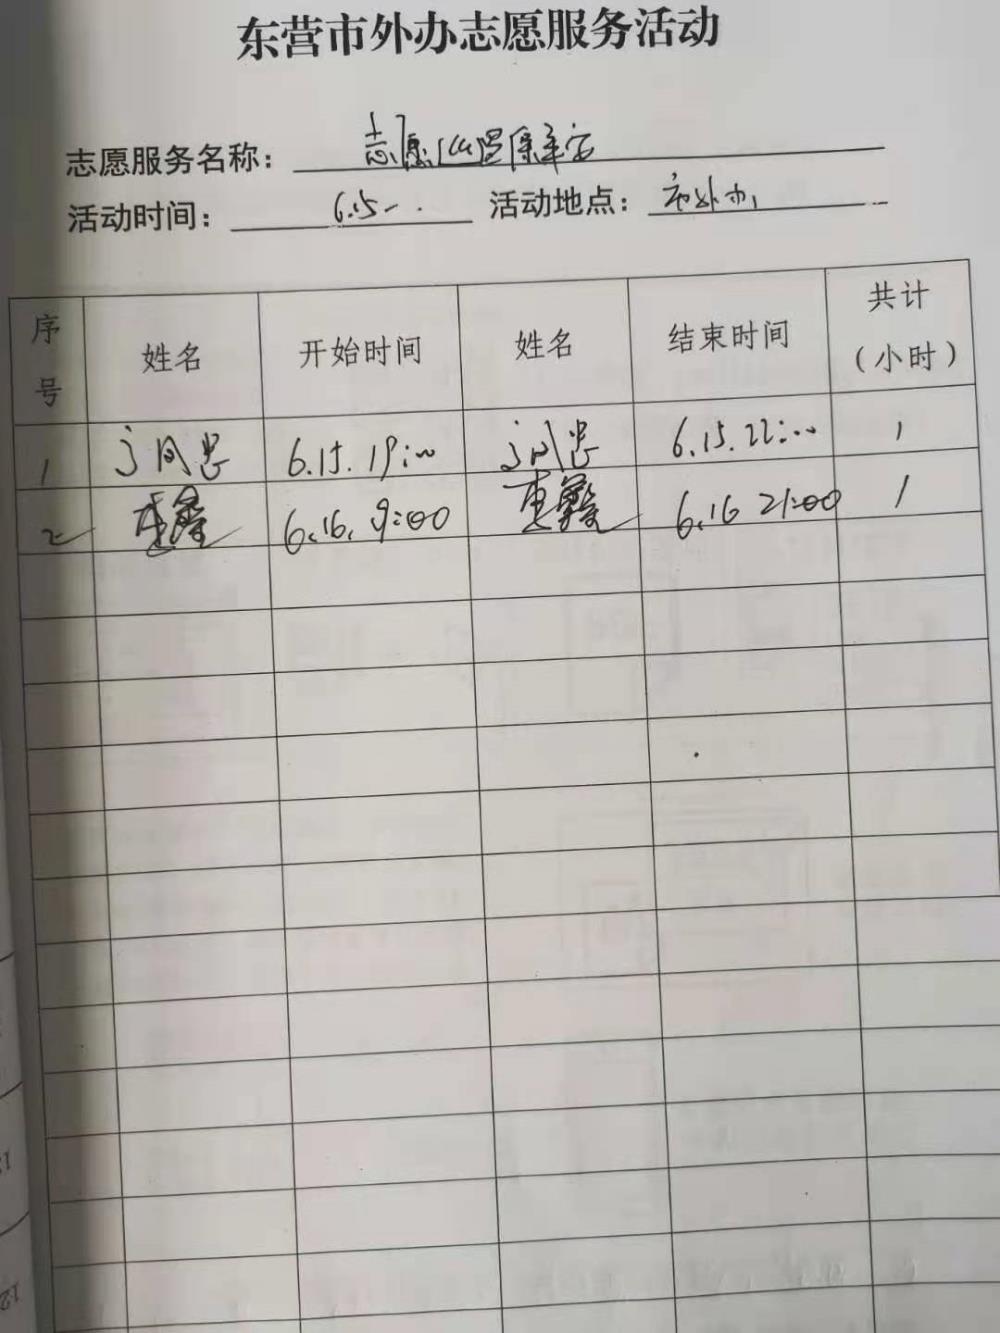 东营市外办志愿服务活动
志愿服务名称：志愿
活动时间：6.15 活动地点：市外办
序号 姓名 开始时间 姓名 结束时间 共计（小时）
1 6.15. 19:00 6.15. 22:00 1
2 6.16. 9:00 6.16 21:00 1